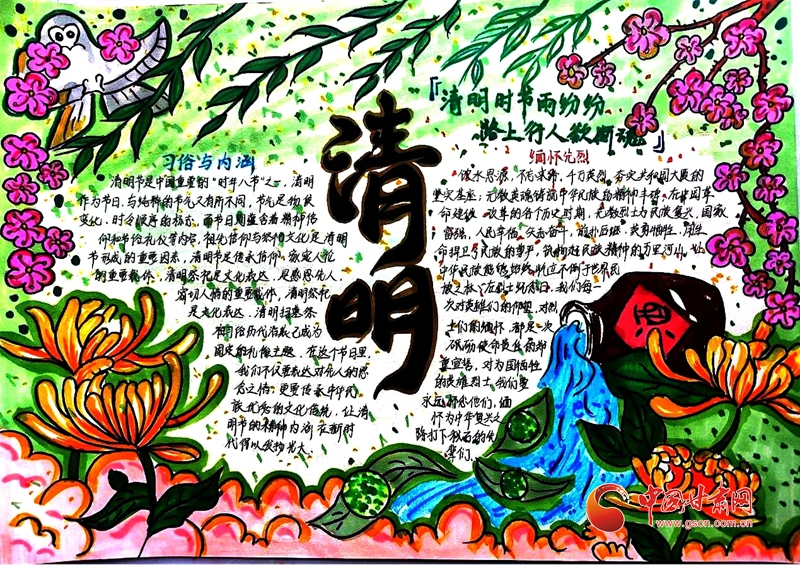 清明
『清明时节雨纷纷
路上行人欲断魂』
习俗与内涵
清明节是中国重要的"时年八节"之一,清明
作为节日,与纯粹的节气又有所不同,节气是物候
变化、时令顺序的标志,而节日则蕴含着精神信
仰和节俗礼仪等内容,祖先信仰与祭祀文化是清明
节形成的重要因素,清明节是传承信仰、敦定人伦
的重要载体,清明祭祀是文化表达,是感恩先人、
的重要载体,清明祭祀
是文化表达,清明扫墓祭
祖习俗历代沿袭已成为
固定的礼俗主题,在这个节日里
我们不仅要表达对先人的思
念之情,更要传承中华民
族优秀的文化传统,让清
明节的精神内涵在新时
代得以发扬光大。
缅怀先烈
饮水思源,不忘来路,千万英烈,夯实共和国大厦的
坚实基座;无数英魂铸就中华民族的精神丰碑,在中国革
命建设、改革的各个历史时期,无数烈士为民族复兴、国家
富强、人民幸福,矢志奋斗,前赴后继,英勇牺牲,用生
命捍卫了民族的尊严,筑构起民族精神的万里河山,让
中华民族能够始终屹立不倒于世界民
族之林,在烈士风范日,我们每一
次对英雄们的仰望,对烈
士们的缅怀,都是一次
使命责任的郑
重宣告,对为国牺牲
的英雄烈士,我们要
永远怀念他们,缅
怀为中华复兴之
路打下
们。
酒
中国甘肃网
www.gscn.com.cn